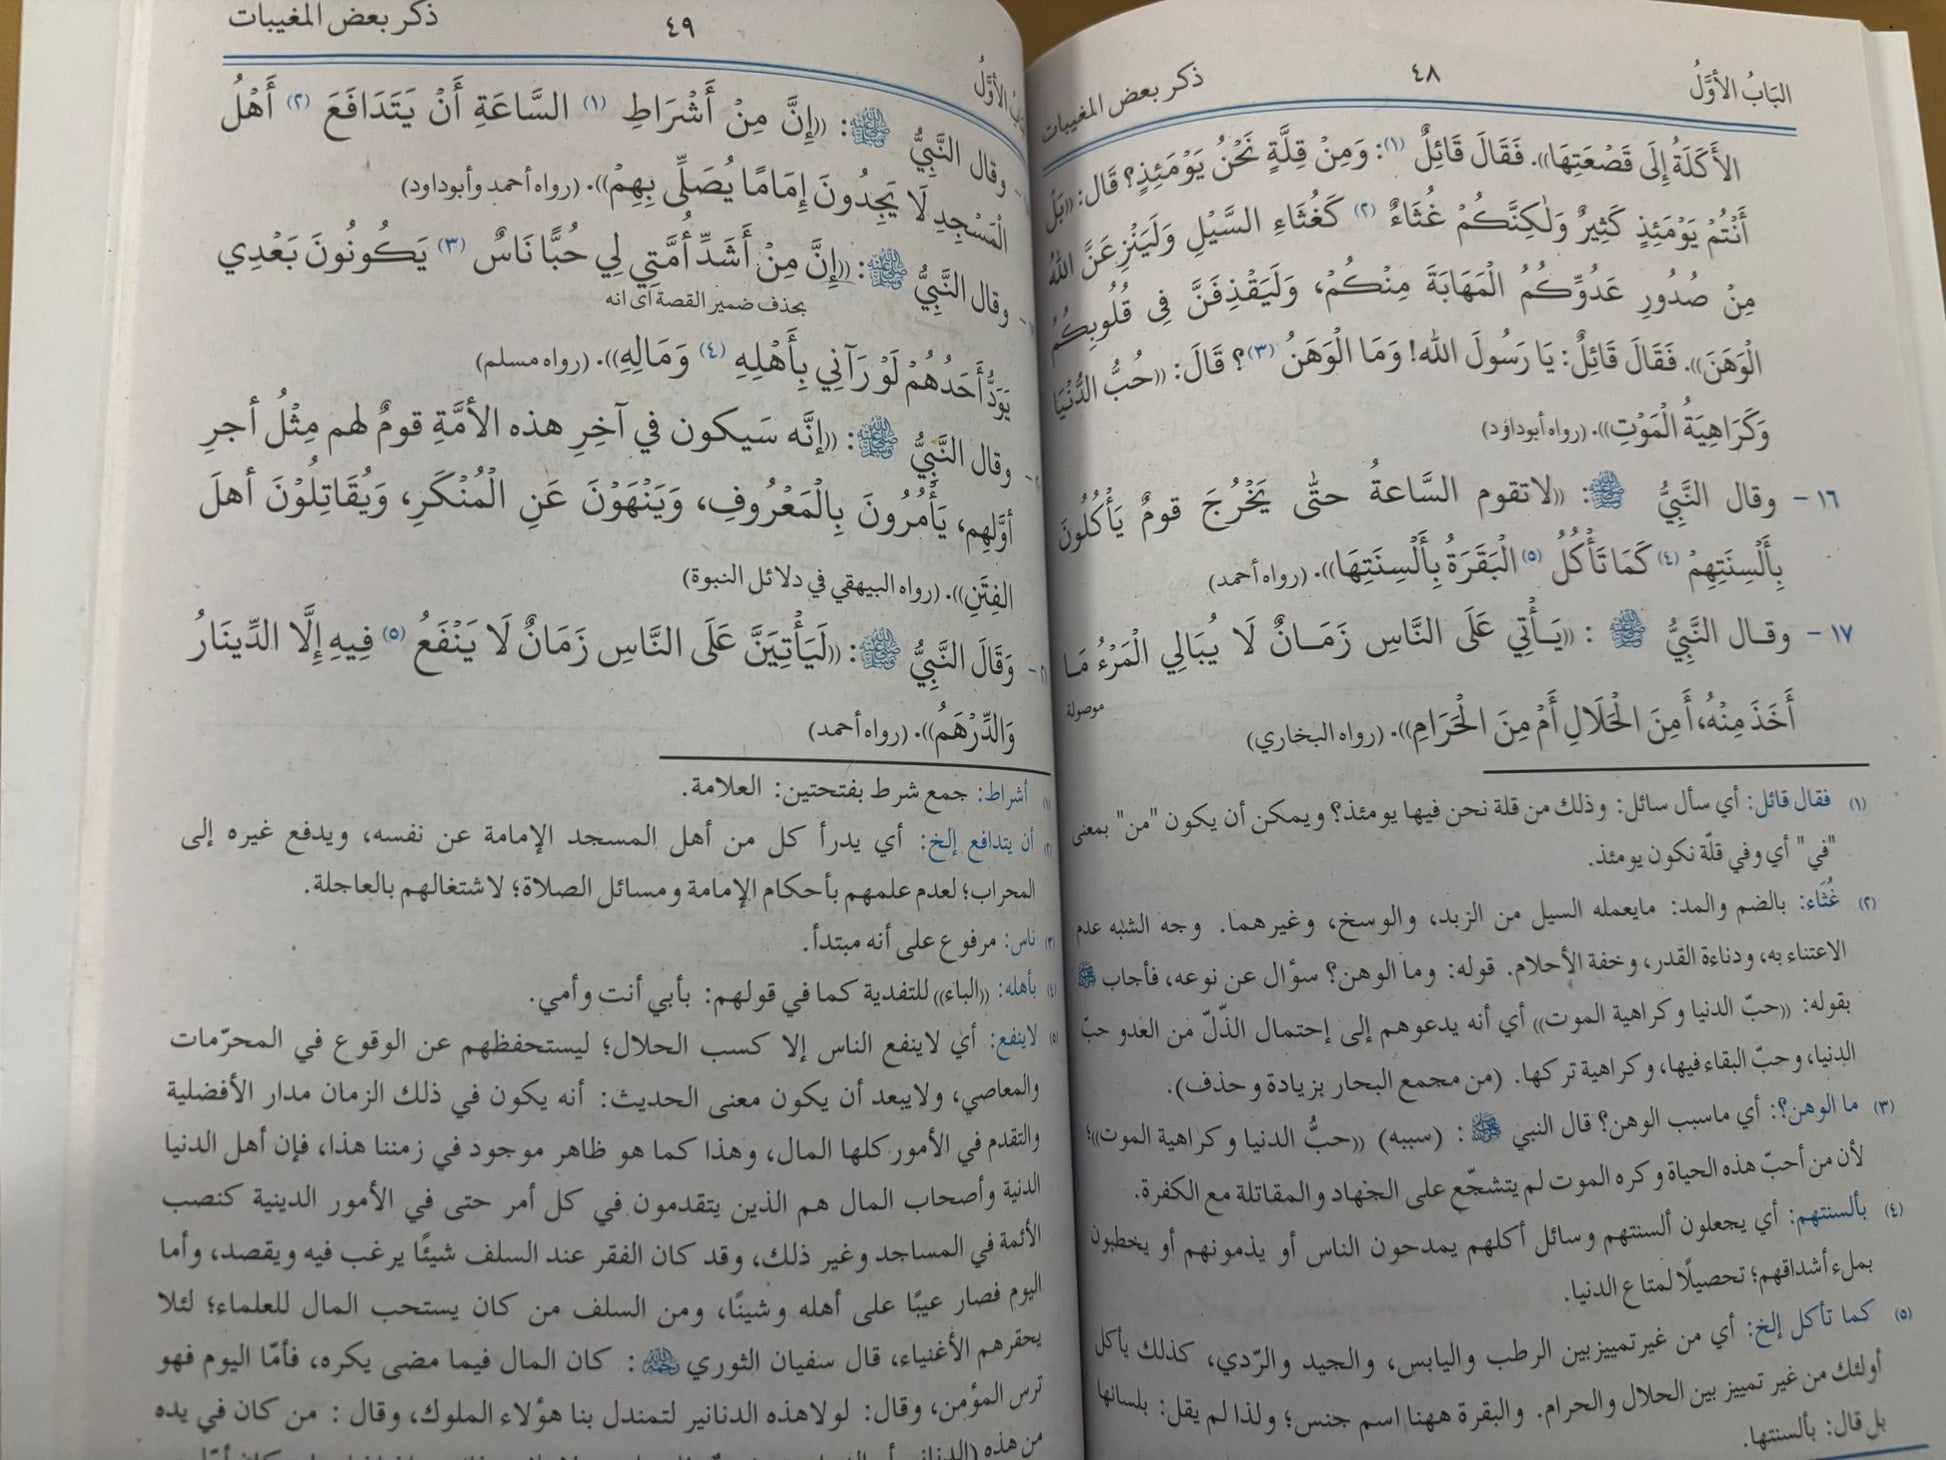 البَابُ الأَوَّلُ ٤٨ ذكر بعض المغيبات
الأَكَلَةُ إِلَى قَصْعَتِهَا)). فَقَالَ قَائِلٌ (١): وَمِنْ قِلَّةٍ نَحْنُ يَوْمَئِذٍ؟ قَالَ: ((بَلْ
أَنْتُمْ يَوْمَئِذٍ كَثِيرٌ وَلٰكِنَّكُمْ غُثَاءٌ (٢) كَغُثَاءِ السَّيْلِ وَلَيَنْزِعَنَّ اللهُ
مِنْ صُدُورِ عَدُوِّكُمُ الْمَهَابَةَ مِنْكُمْ، وَلَيَقْذِفَنَّ فِي قُلُوبِكُمُ
الْوَهَنَ)). فَقَالَ قَائِلٌ: يَا رَسُولَ الله! وَمَا الْوَهَنُ (٣)؟ قَالَ: ((حُبُّ الدُّنْيَا
وَكَرَاهِيَةُ الْمَوْتِ)). (رواه أبوداود)
١٦ - وقال النَّبِيُّ ﷺ: ((لاتقوم السَّاعةُ حتّٰى يَخْرُجَ قومٌ يَأْكُلُونَ
بِأَلْسِنَتِهِمْ (٤) كَمَا تَأْكُلُ (٥) الْبَقَرَةُ بِأَلْسِنَتِهَا)). (رواه أحمد)
١٧ - وقال النَّبِيُّ ﷺ : ((يَأْتِي عَلَى النَّاسِ زَمَانٌ لَا يُبَالِي الْمَرْءُ مَا
موصولة
أَخَذَ مِنْهُ، أَ مِنَ الْحَلَالِ أَمْ مِنَ الْحَرَامِ)). (رواه البخاري)
(١) فقال قائل: أي سأل سائل: وذلك من قلة نحن فيها يومئذ؟ ويمكن أن يكون "من" بمعنى
"في" أي وفي قلّة نكون يومئذ.
(٢) غُثَاء: بالضم والمد: مايعمله السيل من الزبد، والوسخ، وغيرهما. وجه الشبه عدم
الاعتناء به، ودناءة القدر، وخفة الأحلام. قوله: وما الوهن؟ سؤال عن نوعه، فأجاب ﷺ
بقوله: ((حبّ الدنيا وكراهية الموت)) أي أنه يدعوهم إلى إحتمال الذّلّ من العدو حبّ
الدنيا، وحبّ البقاء فيها، وكراهية تركها. (من مجمع البحار بزيادة وحذف).
(٣) ما الوهن؟: أي ماسبب الوهن؟ قال النبي ﷺ : (سببه) ((حبُّ الدنيا وكراهية الموت))؛
لأن من أحبّ هذه الحياة وكره الموت لم يتشجّع على الجهاد والمقاتلة مع الكفرة.
(٤) بألسنتهم: أي يجعلون ألسنتهم وسائل أكلهم يمدحون الناس أو يذمونهم أو يخطبون
بملء أشداقهم؛ تحصيلًا لمتاع الدنيا.
(٥) كما تأكل إلخ: أي من غير تمييز بين الرطب واليابس، والجيد والرّدي، كذلك يأكل
أولئك من غير تمييز بين الحلال والحرام. والبقرة ههنا اسم جنس؛ ولذا لم يقل: بلسانها
بل قال: بألسنتها.
الأَوَّلُ ٤٩ ذكر بعض المغيبات
وقال النَّبِيُّ ﷺ: ((إِنَّ مِنْ أَشْرَاطِ (١) السَّاعَةِ أَنْ يَتَدَافَعَ (٢) أَهْلُ
الْمَسْجِدِ لَا يَجِدُونَ إِمَامًا يُصَلِّي بِهِمْ)). (رواه أحمد وأبوداود)
وقال النَّبِيُّ ﷺ: ((إِنَّ مِنْ أَشَدِّ أُمَّتِي لِي حُبًّا نَاسٌ (٣) يَكُونُونَ بَعْدِي
بحذف ضمير القصة أى انه
يَوَدُّ أَحَدُهُمْ لَوْ رَآنِي بِأَهْلِهِ (٤) وَمَالِهِ)). (رواه مسلم)
وقال النَّبِيُّ ﷺ: ((إنَّه سَيكون في آخِرِ هذه الأمَّةِ قومٌ لهم مِثْلُ أجرِ
أوَّلهِم، يَأْمُرُونَ بِالْمَعْرُوفِ، وَيَنْهَوْنَ عَنِ الْمُنْكَرِ، وَيُقَاتِلُوْنَ أهلَ
الفِتَنِ)). (رواه البيهقي في دلائل النبوة)
وَقَالَ النَّبِيُّ ﷺ: ((لَيَأْتِيَنَّ عَلَى النَّاسِ زَمَانٌ لَا يَنْفَعُ (٥) فِيهِ إِلَّا الدِّينَارُ
وَالدِّرْهَمُ)). (رواه أحمد)
(١) أشراط: جمع شرط بفتحتين: العلامة.
(٢) أن يتدافع إلخ: أي يدرأ كل من أهل المسجد الإمامة عن نفسه، ويدفع غيره إلى
المحراب؛ لعدم علمهم بأحكام الإمامة ومسائل الصلاة؛ لاشتغالهم بالعاجلة.
(٣) ناس: مرفوع على أنه مبتدأ.
(٤) بأهله: ((الباء)) للتفدية كما في قولهم: بأبي أنت وأمي.
(٥) لاينفع: أي لاينفع الناس إلا كسب الحلال؛ ليستحفظهم عن الوقوع في المحرّمات
والمعاصي، ولايبعد أن يكون معنى الحديث: أنه يكون في ذلك الزمان مدار الأفضلية
والتقدم في الأمور كلها المال، وهذا كما هو ظاهر موجود في زمننا هذا، فإن أهل الدنيا
الدنية وأصحاب المال هم الذين يتقدمون في كل أمر حتى في الأمور الدينية كنصب
الأئمة في المساجد وغير ذلك، وقد كان الفقر عند السلف شيئًا يرغب فيه ويقصد، وأما
اليوم فصار عيبًا على أهله وشينًا، ومن السلف من كان يستحب المال للعلماء؛ لئلا
يحقرهم الأغنياء، قال سفيان الثوري رحمه الله : كان المال فيما مضى يكره، فأمّا اليوم فهو
ترس المؤمن، وقال: لولاهذه الدنانير لتمندل بنا هؤلاء الملوك، وقال : من كان في يده
من هذه (الدنانير